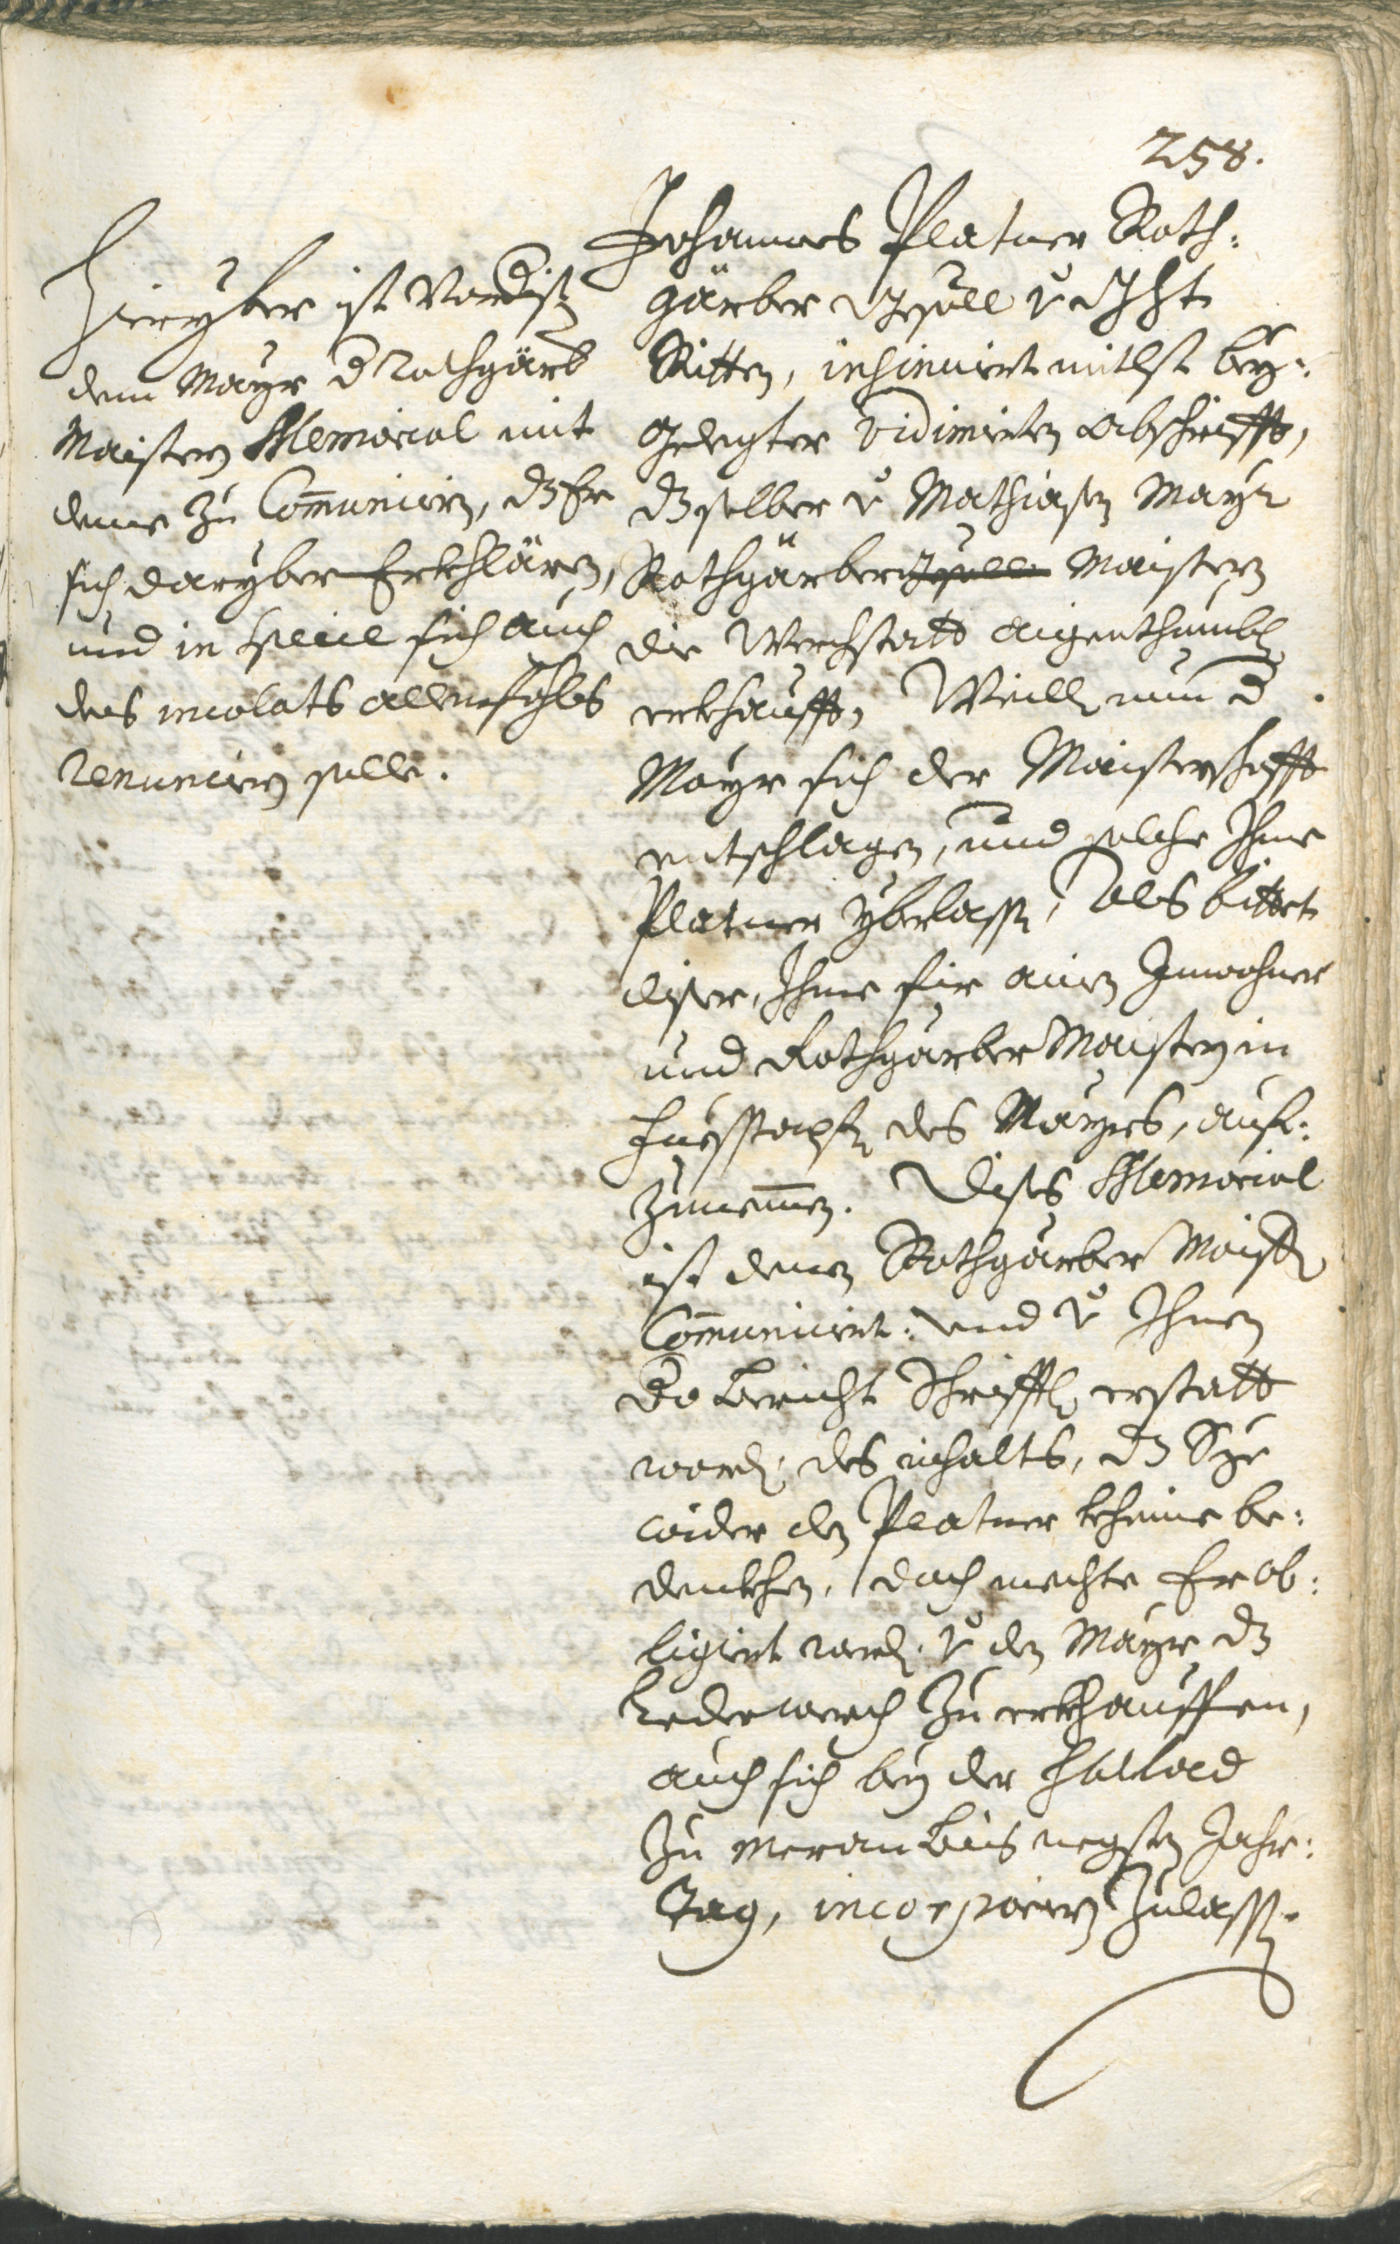 258.
Hieryber ist vordist
dem Mayr d Rothgärb
Maistern Memorial mit
deme zu Com̅unicirn, dz Er
sich daryber Erkhlären,
und in specie sich auch
des incolats allenfahls
renuncirn solle.
Johannes Platner Roth:
gärber Gesöll v
Ritten, insinuirt mitlst bey:
gelegter vidimirten Abschrifft,
dz selber v Mathiasen Mayr
Rothgärber Gesölln Maistern
die Werchstatt aigenthumbl
erkhaufft, Weilln nun d
Mayr sich der Maisterschafft
entschlagen, und solche Ihme
Platner yberlassn, Als bittet
diser, Ihme fir ainen Inwohner
und Rothgärber Maistern in
Fuesstapfn des Mayrs, auf:
zunem̅en. Dises Memorial
ist denen Rothgärber Maistn
Com̅unicirt: und v Ihnen
do bericht schrifftl erstatt
wordn; des inhalts, dz Sye
wider den Platner kheine be:
denkhen, doch mechte Er ob:
ligirt werdn v den Mayr dz
Lederwerch zu erkhauffen,
auch sich bey der
zu Meran bis negsten Jahr:
Tag, incorporirn zulassn.